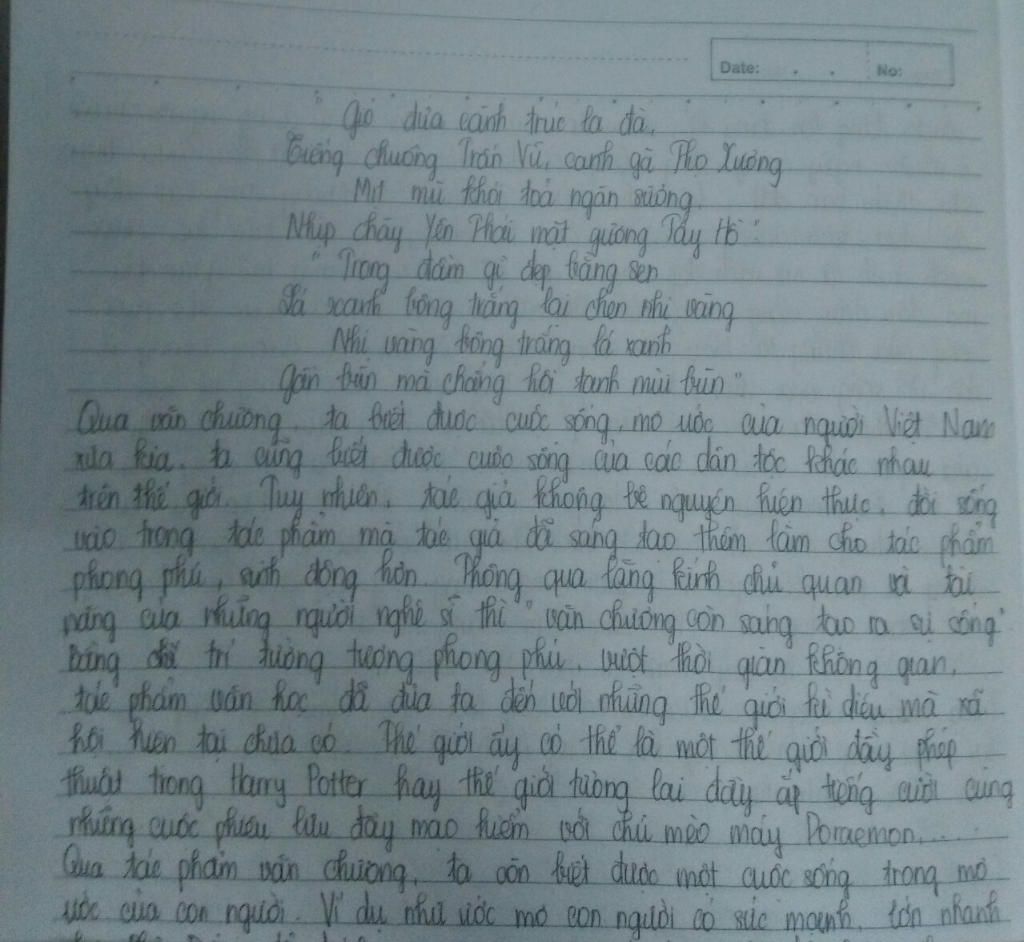 Date: . . No:
"Gió đưa cành trúc la đà,
Tiếng chuông Trấn Vũ, canh gà Thọ Xương
Mịt mù khói toả ngàn sương
Nhịp chày Yên Thái mặt gương Tây Hồ"
"Trong đầm gì đẹp bằng sen
Lá xanh bông trắng lại chen nhị vàng
Nhị vàng bông trắng lá xanh
Gần bùn mà chẳng hôi tanh mùi bùn"
Qua văn chương, ta biết được cuộc sống, mơ ước của người Việt Nam
xưa kia. ta cũng biết được cuộc sống của các dân tộc khác nhau
trên thế giới. Tuy nhiên, tác giả không bê nguyên hiện thực, đời sống
vào trong tác phẩm mà tác giả đã sáng tạo thêm làm cho tác phẩm
phong phú, sinh động hơn. Thông qua lăng kính chủ quan và tài
năng của những người nghệ sĩ thì "văn chương còn sáng tạo ra sự sống"
Bằng trí tưởng tượng phong phú, vượt thời gian không gian,
tác phẩm văn học đã đưa ta đến với những thế giới kì diệu mà xã
hội hiện tại chưa có. Thế giới ấy có thể là một thế giới đầy phép
thuật trong Harry Potter hay thế giới tương lai đầy ắp tiếng cười cùng
những cuộc phiêu lưu đầy mạo hiểm với chú mèo máy Doraemon.....
Qua tác phẩm văn chương, ta còn biết được một cuộc sống trong mơ
ước của con người. Ví dụ như ước mơ con người có sức mạnh, lớn nhanh